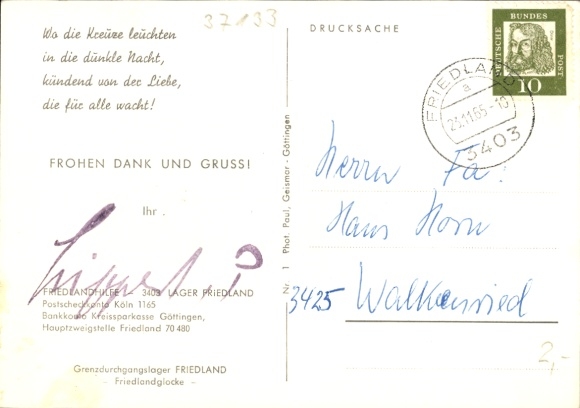 37/33
Wo die Kreuze leuchten
in die dunkle Nacht,
kündend von der Liebe,
die für alle wacht!
FROHEN DANK UND GRUSS!
Ihr .
FRIEDLANDHILFE – 3403 LAGER FRIEDLAND
Postscheckkonto Köln 1165
Bankkonto Kreissparkasse Göttingen,
Hauptzweigstelle Friedland 70 480
Grenzdurchgangslager FRIEDLAND
– Friedlandglocke –
Nr. 1 Phot. Paul, Geismar - Göttingen
DRUCKSACHE
DEUTSCHE BUNDES POST
10
FRIEDLAND
a
23.11.65-10
3403
Herrn Fa.
Hans Horn
3425 Walkenried
2,-